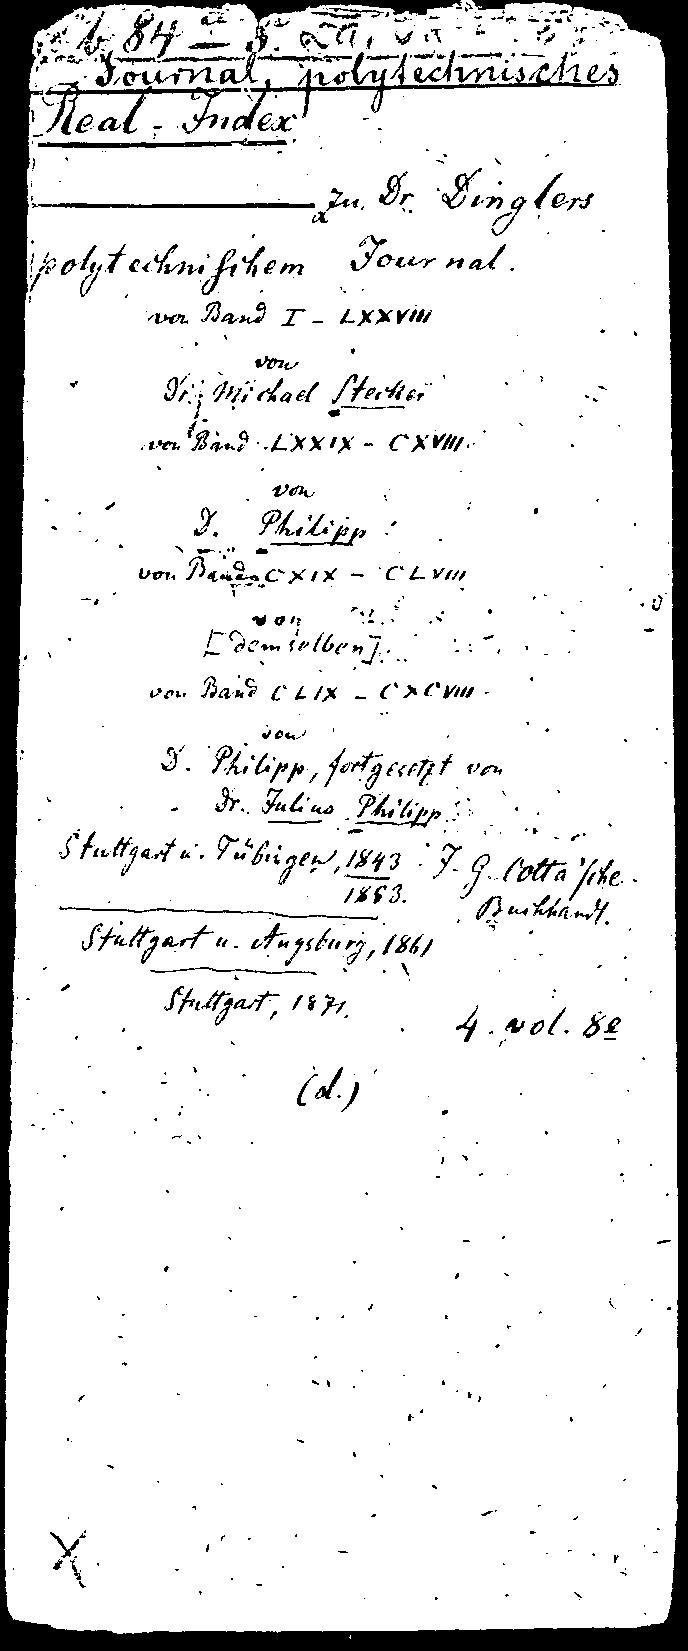 b 84
Journal, polytechnisches
Real-Index
zu Dr. Dinglers
polytechnischem Journal.
von Band I - LXXVIII
von
Dr. Michael Stecker
von Band LXXIX - CXVIII.
von
D. Philipp
von Band CXIX - CLVIII
von
[demselben].
von Band CLIX - CXCVIII.
von
D. Philipp, fortgesetzt von
Dr. Julius Philipp.
Stuttgart u. Tübingen, 1843 J. G. Cotta'sche
1853. Buchhandl.
Stuttgart u. Augsburg, 1861
Stuttgart, 1871.
4. vol. 8º
(d.)
X